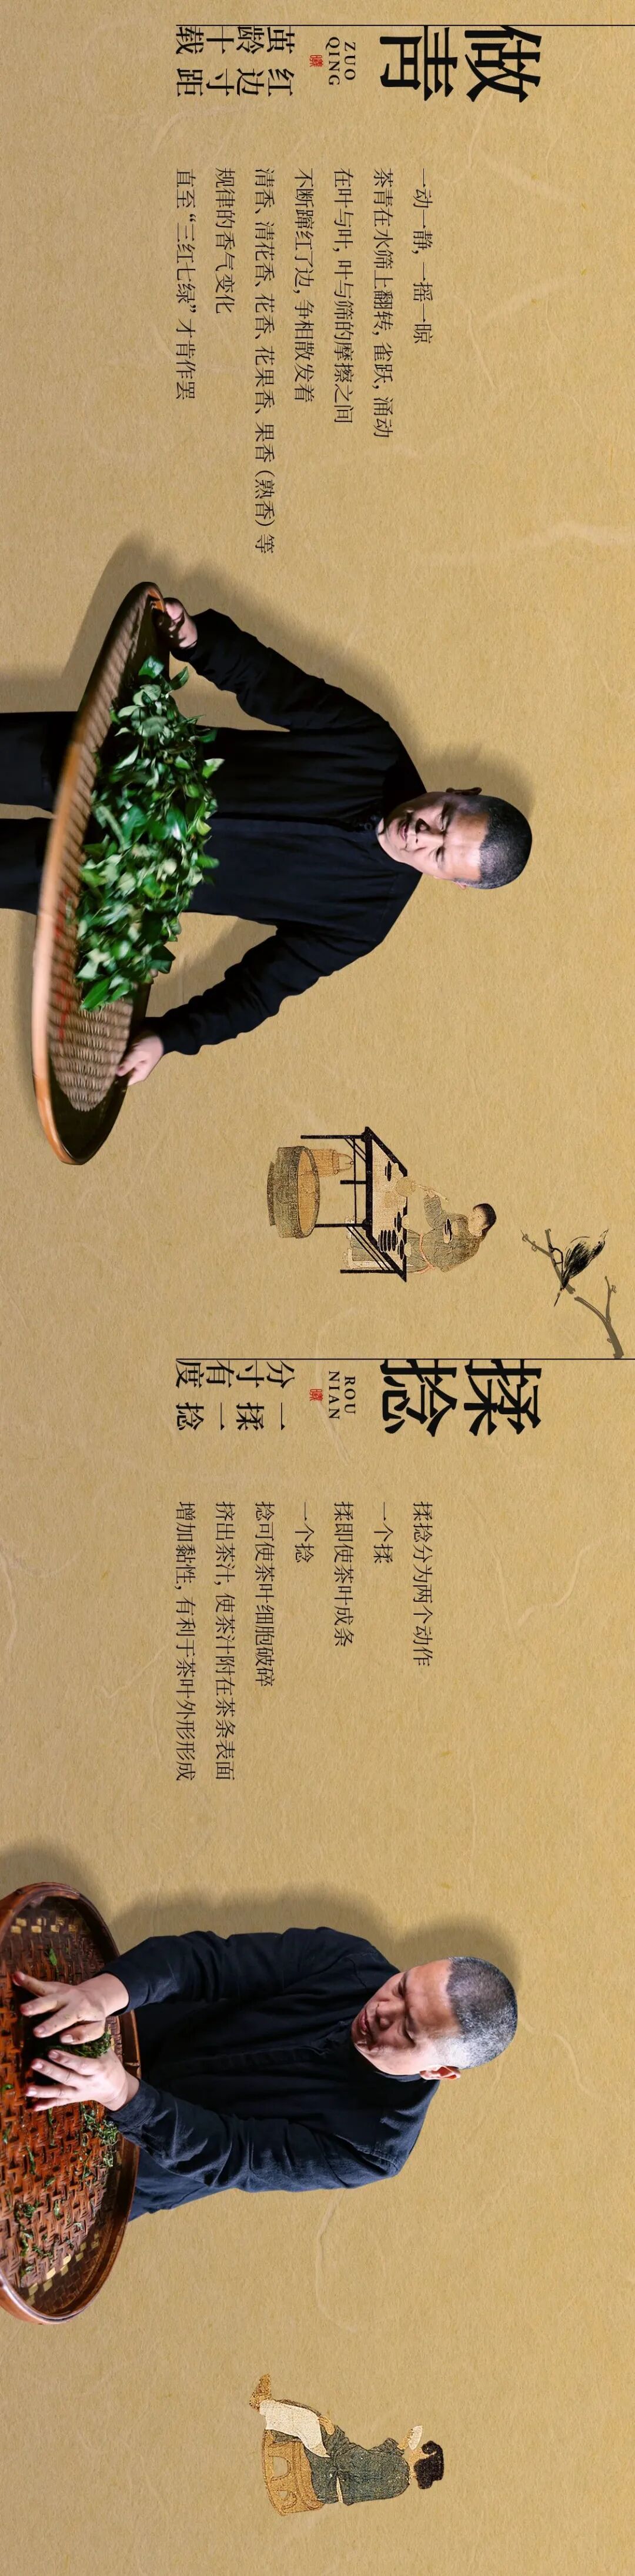 做青
ZUO
QING
红边寸距
茧龄十载
一动一静，一摇一晾
茶青在水筛上翻转，雀跃，涌动
在叶与叶，叶与筛的摩擦之间
不断蹿红了边，争相散发着
清香、清花香、花香、花果香、果香（熟香）等
规律的香气变化
直至“三红七绿”才肯作罢
揉捻
ROU
NIAN
一揉一捻
分寸有度
揉捻分为两个动作
一个揉
揉即使茶叶成条
一个捻
捻可使茶叶细胞破碎
挤出茶汁，使茶汁附在茶条表面
增加黏性，有利于茶叶外形形成